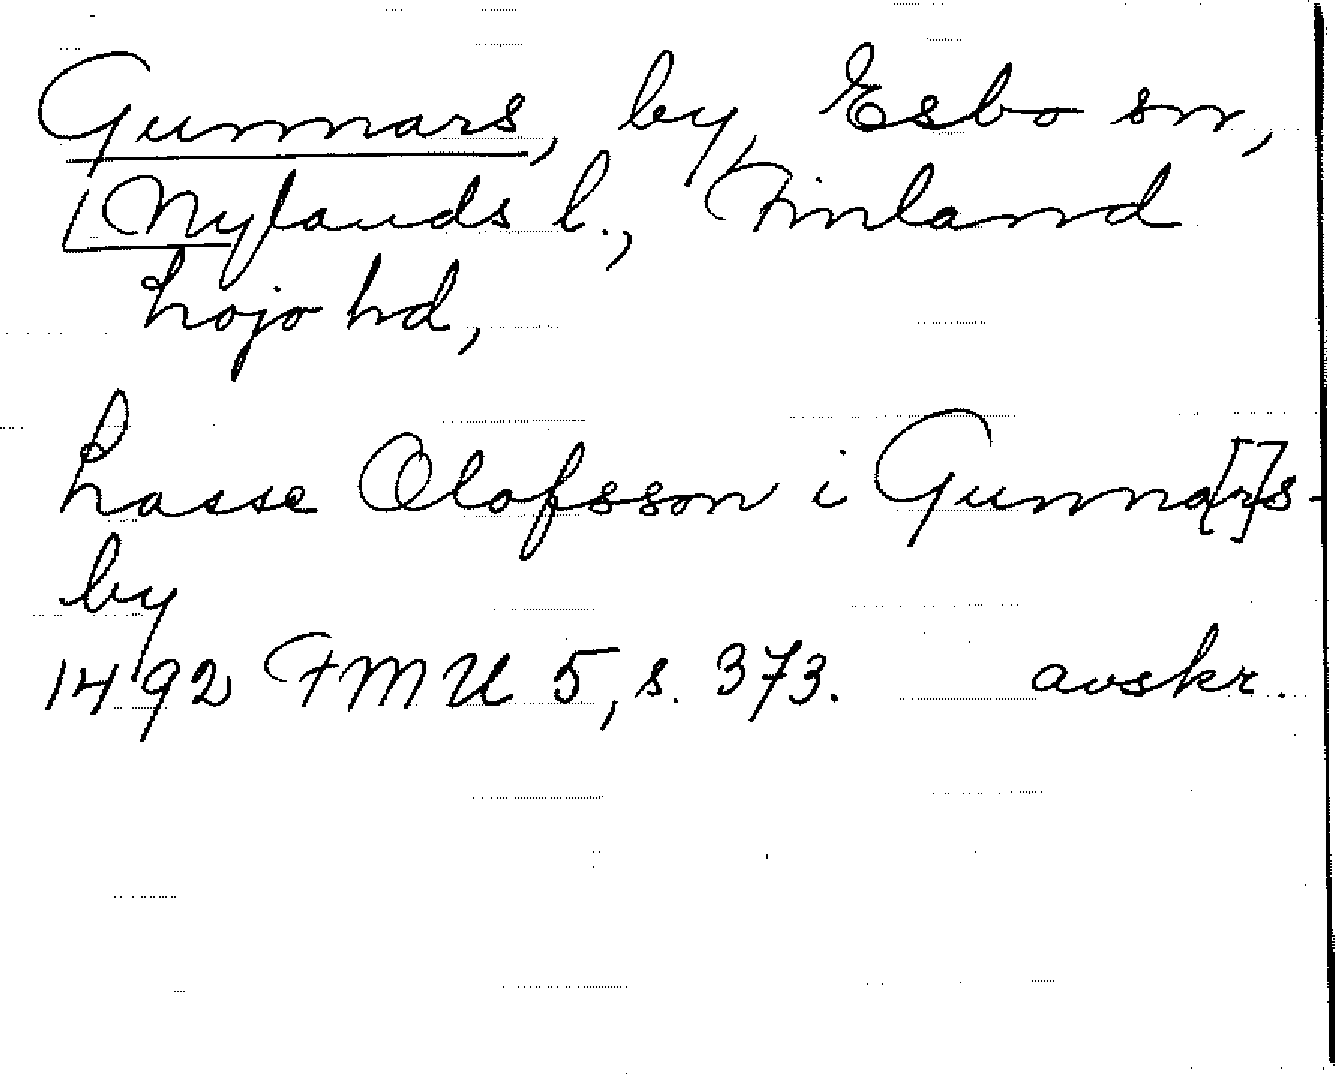 Gunnars, by, Esbo sn,
Nylands l., Finland
Lojo hd,
Lasse Olofsson i Gunna[r]s-
by
1492 FMU 5, s. 373. avskr.